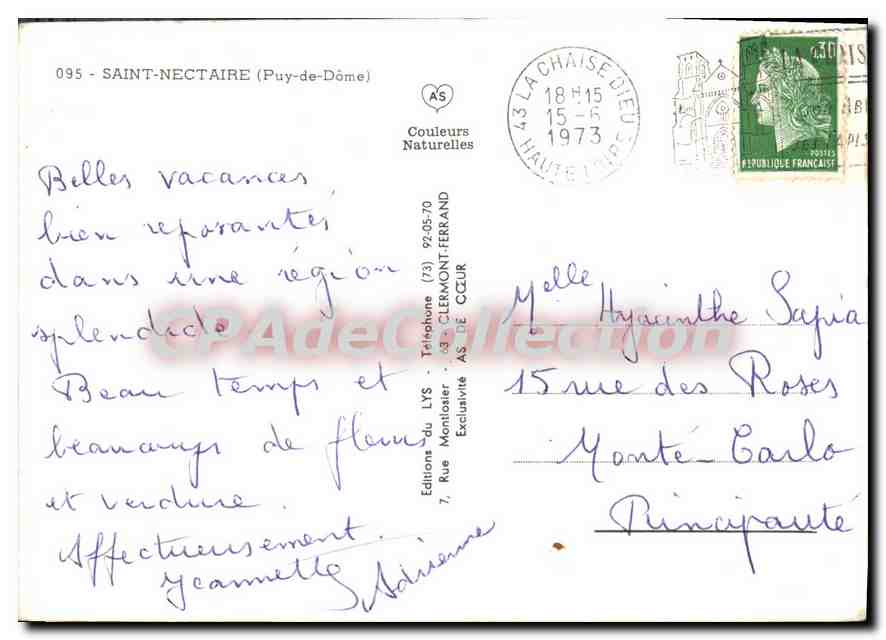 095 - SAINT-NECTAIRE (Puy-de-Dôme)
AS
Couleurs
Naturelles
43 LA CHAISE DIEU
18H15
15-6
1973
HAUTE LOIRE
0,30
POSTES
REPUBLIQUE FRANÇAISE
Belles vacances,
bien reposantes
dans une région
splendide
Beau temps et
beaucoup de fleurs
et verdure.
Affectueusement.
Jeannette
Adrienne
Editions du LYS - Téléphone (73) 92-05-70
7, Rue Montlosier - 63 - CLERMONT-FERRAND
Exclusivité AS DE CŒUR
Melle Hyacinthe Sapia
15 rue des Roses
Monté-Carlo
Principauté
CPAdeCollection